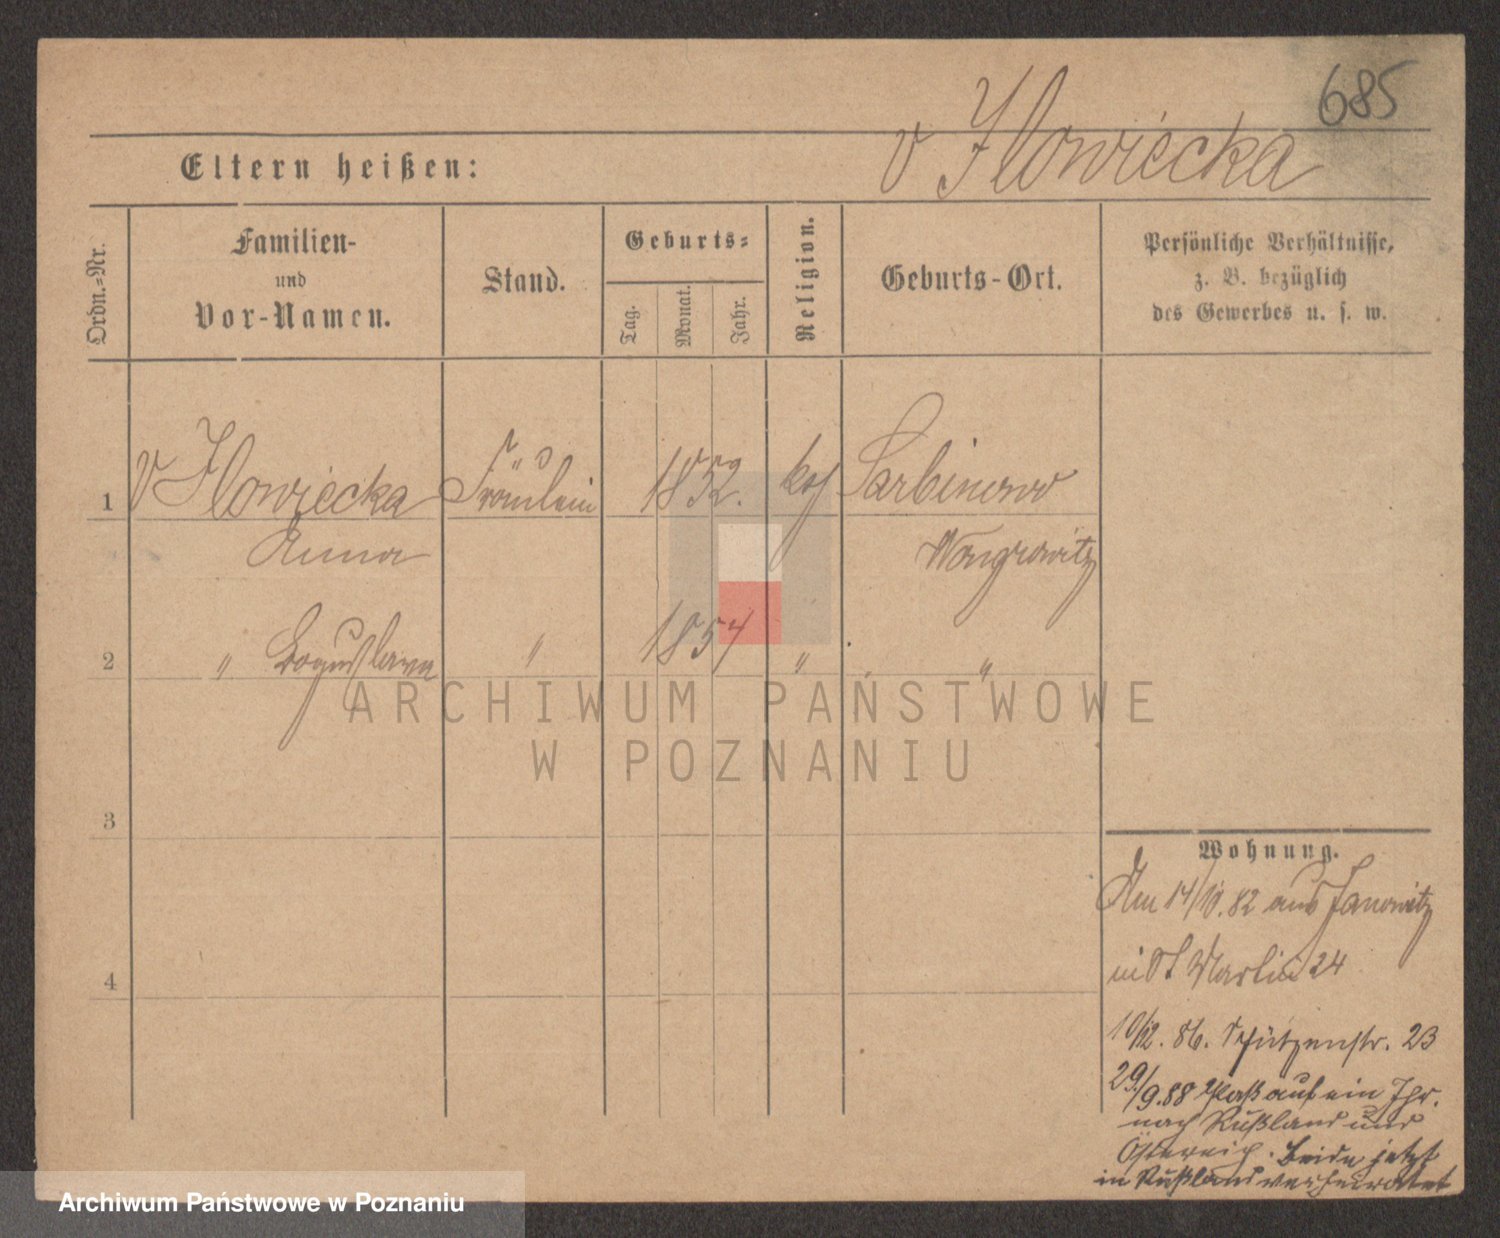 685
v Ilowiecka
Eltern heißen:
Ordn.-Nr.
Familien-
und
Vor-Namen.
Stand.
Geburts-
Tag.
Monat.
Jahr.
Religion.
Geburts-Ort.
Persönliche Verhältnisse,
z. B. bezüglich
des Gewerbes u. s. w.
1 v Ilowiecka Fräulein 1852. kath Sarbinowo
Anna Wongrowitz
2 " Boguslawa " 1854 " "
3
4
Wohnung.
Am 14/10.82 aus Janowitz
in St Martin 24
10/12. 86. Schützenstr. 23
29/9.88 Paß auf ein Jhr.
nach Rußland und
Östereich. Beide jetzt
in Rußland verheiratet
ARCHIWUM PAŃSTWOWE
W POZNANIU
Archiwum Państwowe w Poznaniu